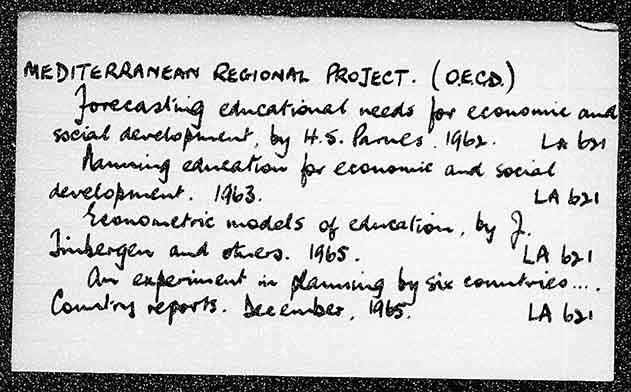 MEDITERRANEAN REGIONAL PROJECT. (O.E.C.D.)
Forecasting educational needs for economic and
social development, by H.S. Parnes. 1962. LA 621
Planning education for economic and social
development. 1963. LA 621
Econometric models of education, by J.
Tinbergen and others. 1965. LA 621
An experiment in planning by six countries....
Country reports. December, 1965. LA 621